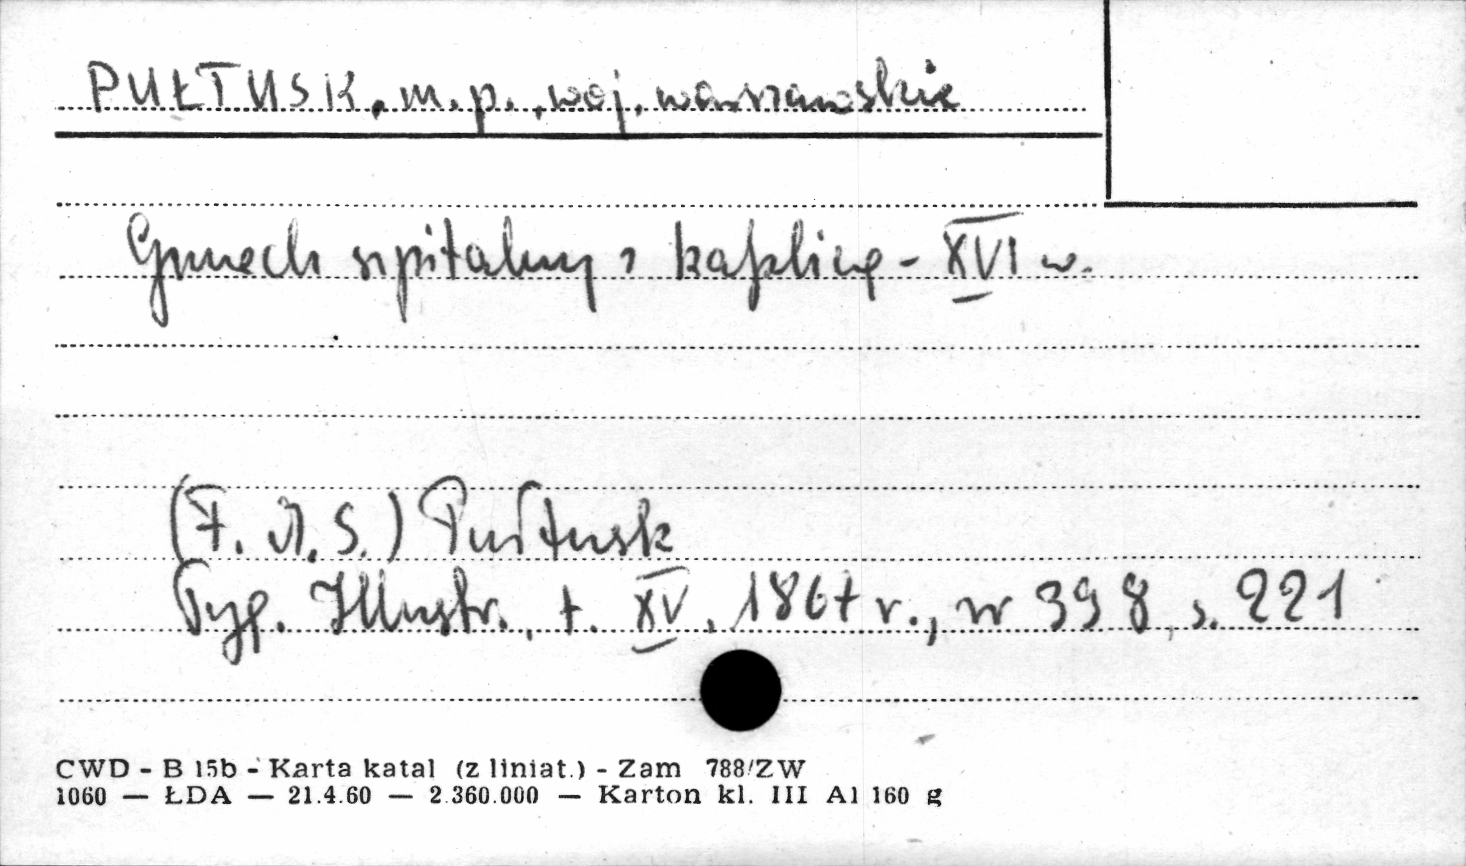 PUŁTUSK, m. p., woj. warszawskie
Gmach szpitalny z kaplicą - XVI w.
(F. M. S.) Pułtusk
Tyg. Illustr., t. XV, 1867 r., nr 398, s. 221
CWD - B 15b - Karta katal (z liniat.) - Zam 788/ZW
1060 — ŁDA — 21.4.60 — 2.360.000 — Karton kl. III A1 160 g